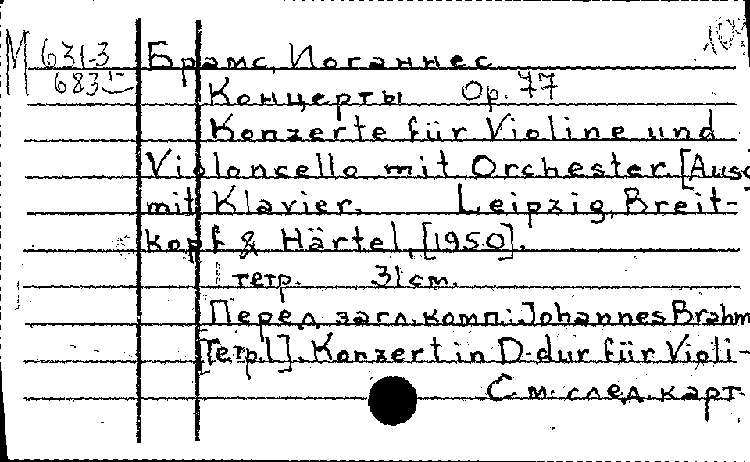 М 631-3 Брамс, Иоганнес 109
683 Концерты Op. 77
Konzerte für Violine und
Violoncello mit Orchester. [Ausg
mit Klavier. Leipzig, Breit-
kopf & Härtel, [1950].
1 тетр. 31 см.
Перед загл. комп.: Johannes Brahm
[Тетр. 1]. Konzert in D-dur für Violi-
См. след. карт.